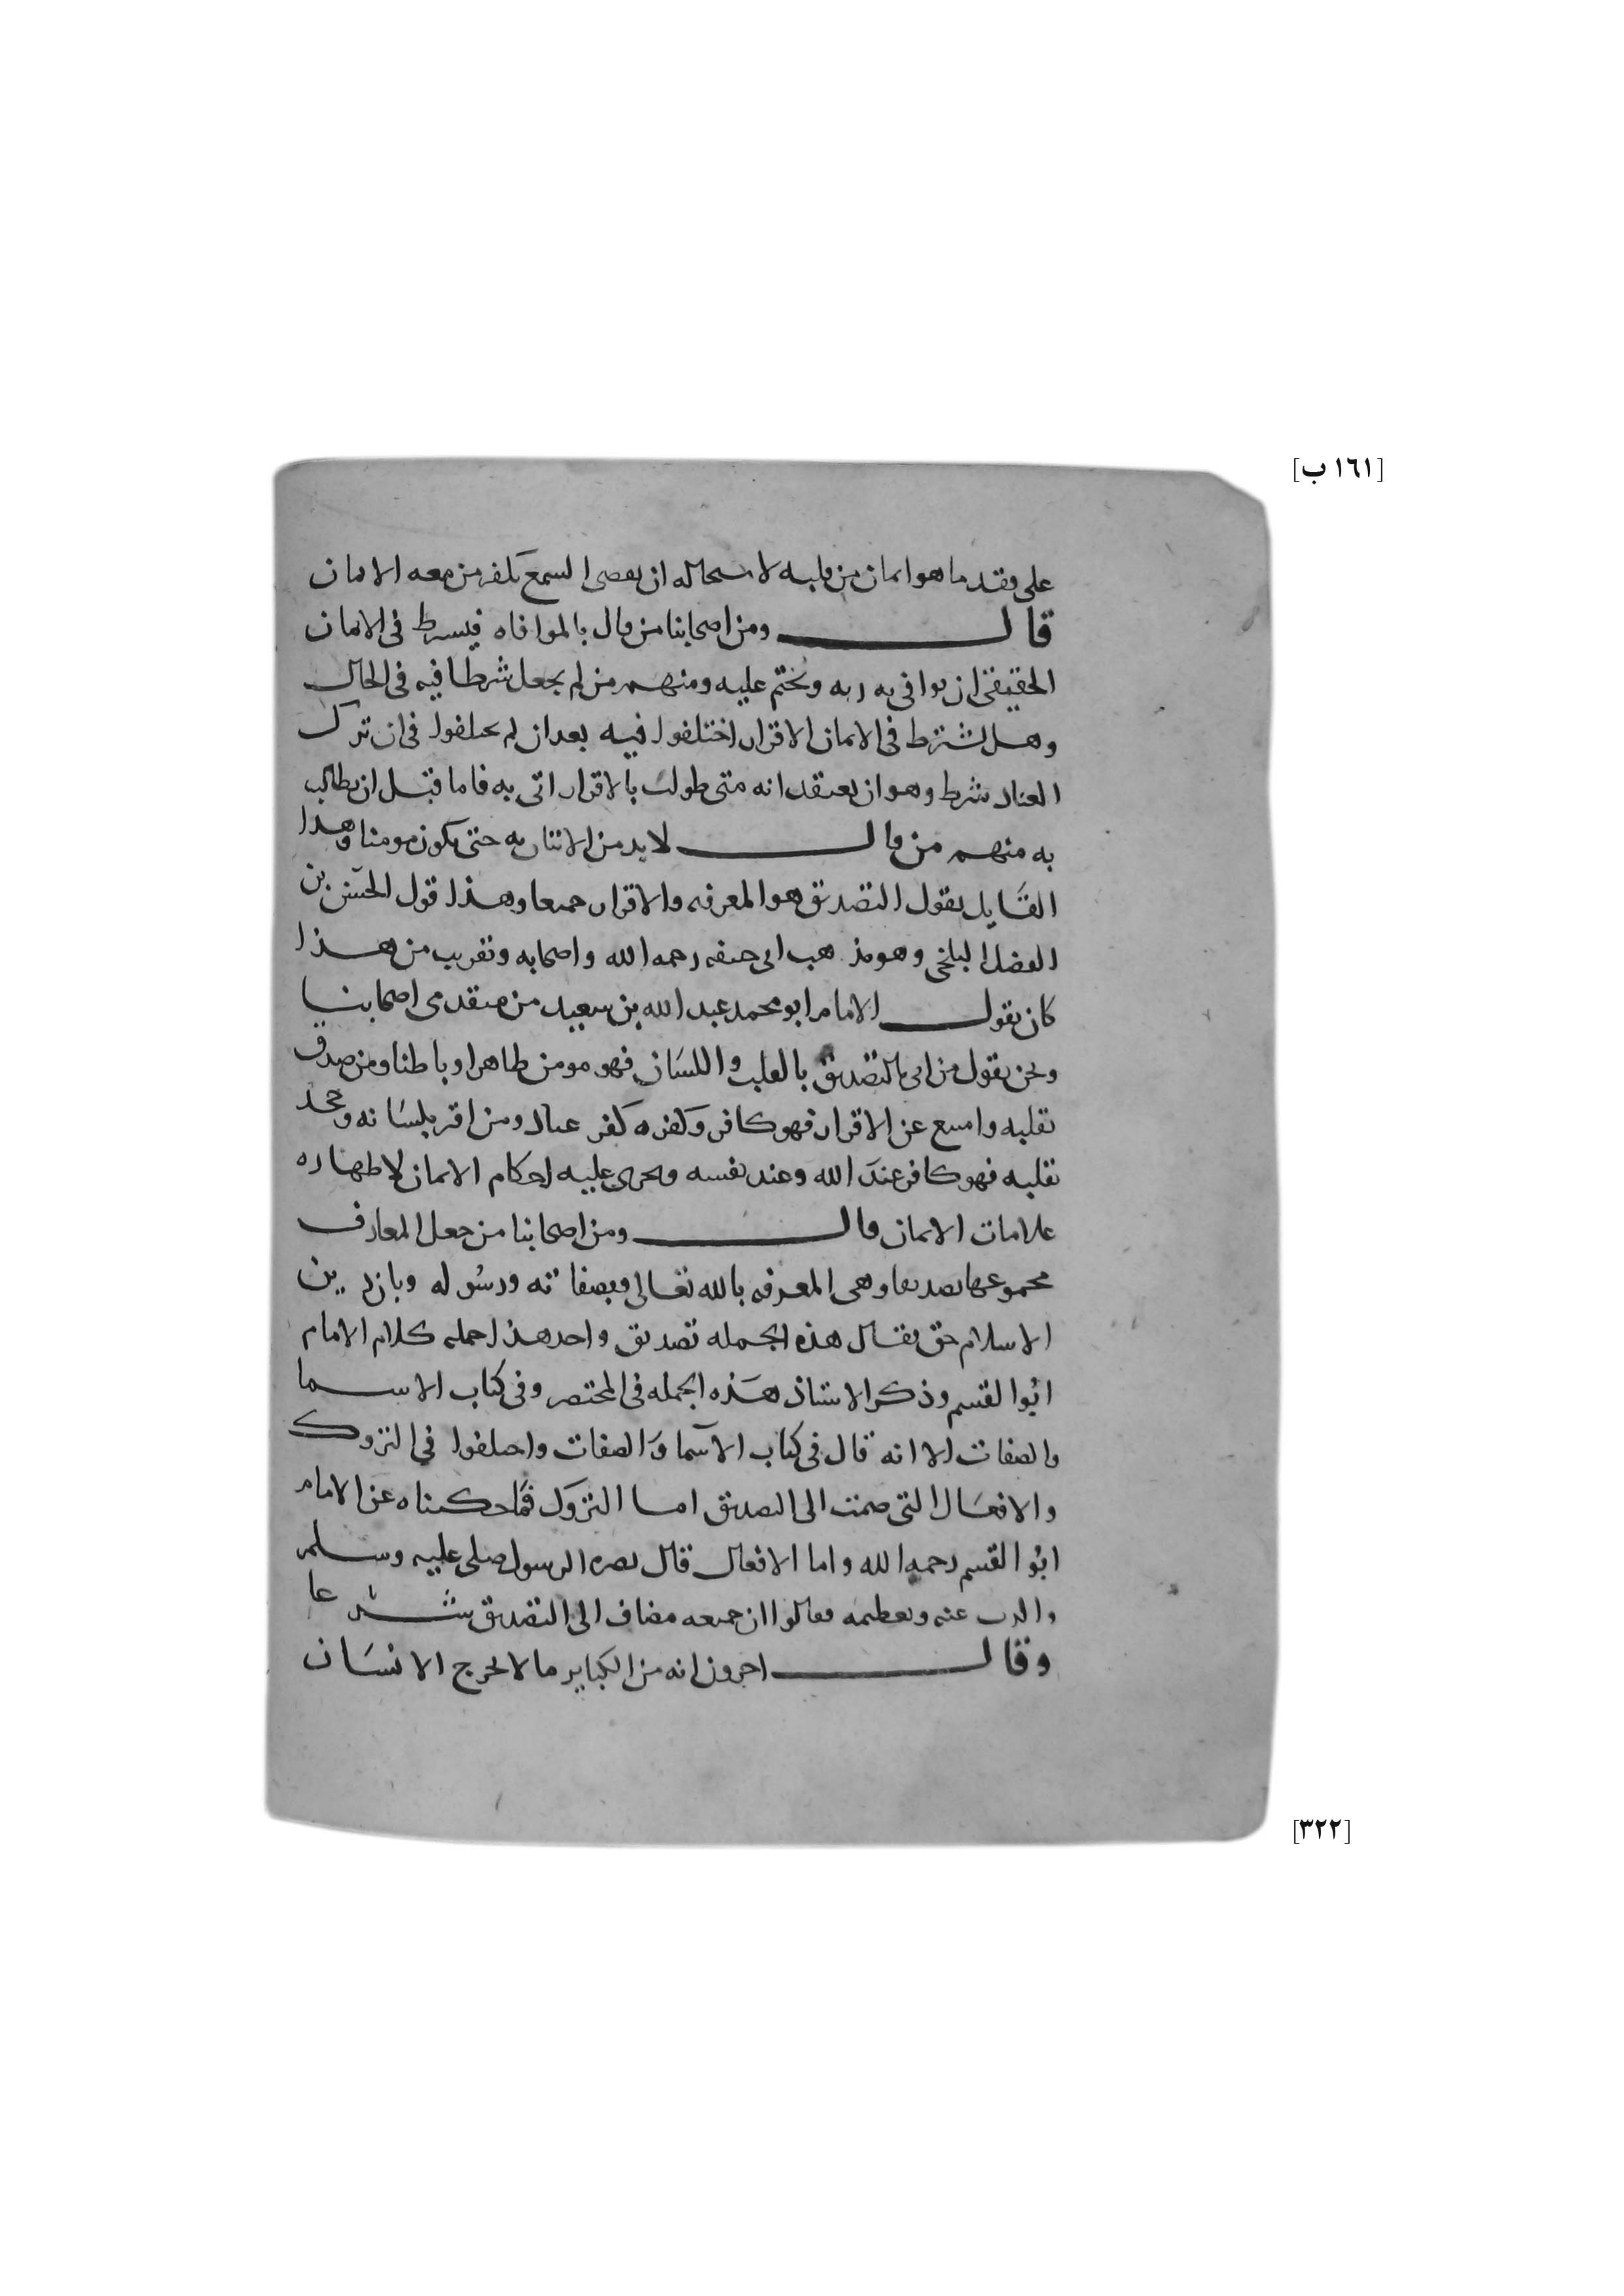 [١٦١ ب]
على فقد ما هو ايمان من قلبه لاستحاله ان يقضى السمع بكفر من معه الايمان
قال ومن اصحابنا من قال بالموافاه فيشرط فى الايمان
الحقيقى ان يوافى به ربه ويختم عليه ومنهم من لم يجعل شرطا فيه فى الحال
وهل يشترط فى الايمان الاقرار اختلفوا فيه بعد ان لم يختلفوا فى ان ترك
العناد شرط وهو ان يعتقد انه متى طولب بالاقرار اتى به فاما قبل ان يطالب
به منهم من قال لا بد من الاتيان به حتى يكون مومنا وهذا
القايل يقول التصديق هو المعرفه والاقرار جميعا وهذا قول الحسين بن
الفضل البلخى وهو مذهب ابى حنيفه رحمه الله واصحابه وبقريب من هذا
كان يقول الامام ابو محمد عبد الله بن سعيد من متقدمى اصحابنا
ونحن نقول من اتى بالتصديق بالقلب واللسان فهو مومن ظاهرا وباطنا ومن صدق
بقلبه وامتنع عن الاقرار فهو كافر وكفره كفر عناد ومن اقر بلسانه وجحد
بقلبه فهو كافر عند الله وعند نفسه ويجرى عليه احكام الايمان لاظهاره
علامات الايمان قال ومن اصحابنا من جعل المعارف
مجموعها تصديقا وهى المعرفه بالله تعالى وبصفاته ورسوله وبان دين
الاسلام حق يقال هذه الجمله تصديق واحد هذا جمله كلام الامام
ابو القسم وذكر الاستاذ هذه الجمله فى المختصر وفى كتاب الاسما
والصفات الا انه قال فى كتاب الاسما والصفات واختلفوا فى التروك
والافعال التى ضمت الى التصديق اما التروك فما حكيناه عن الامام
ابو القسم رحمه الله واما الافعال قال نصره الرسول صلى عليه وسلم
والذب عنه وتعظيمه فقالوا ان جميعه مضاف الى التصديق شرعا
وقال اخرون انه من الكباير ما لا يخرج الانسان
[٣٢٢]